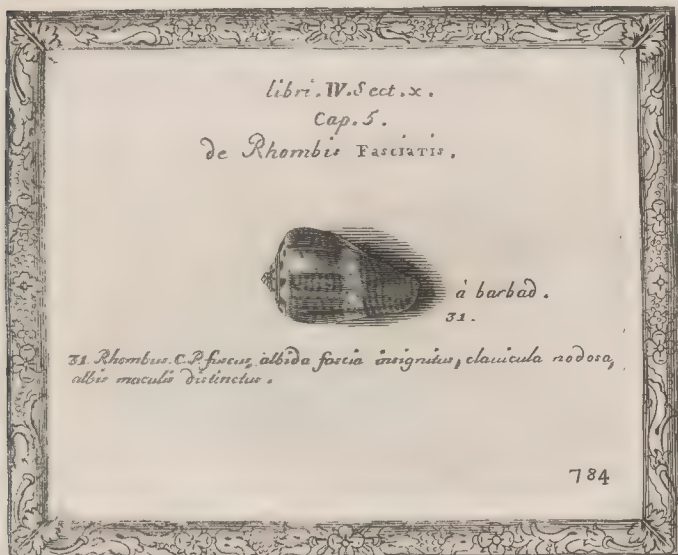 libri. IV. Sect. x.
Cap. 5.
de Rhombis FASCIATIS.
à barbad.
31.
31. Rhombus. C. P. fuscus, albida fascia insignitus, clavicula nodosa,
albis maculis distinctus.
784